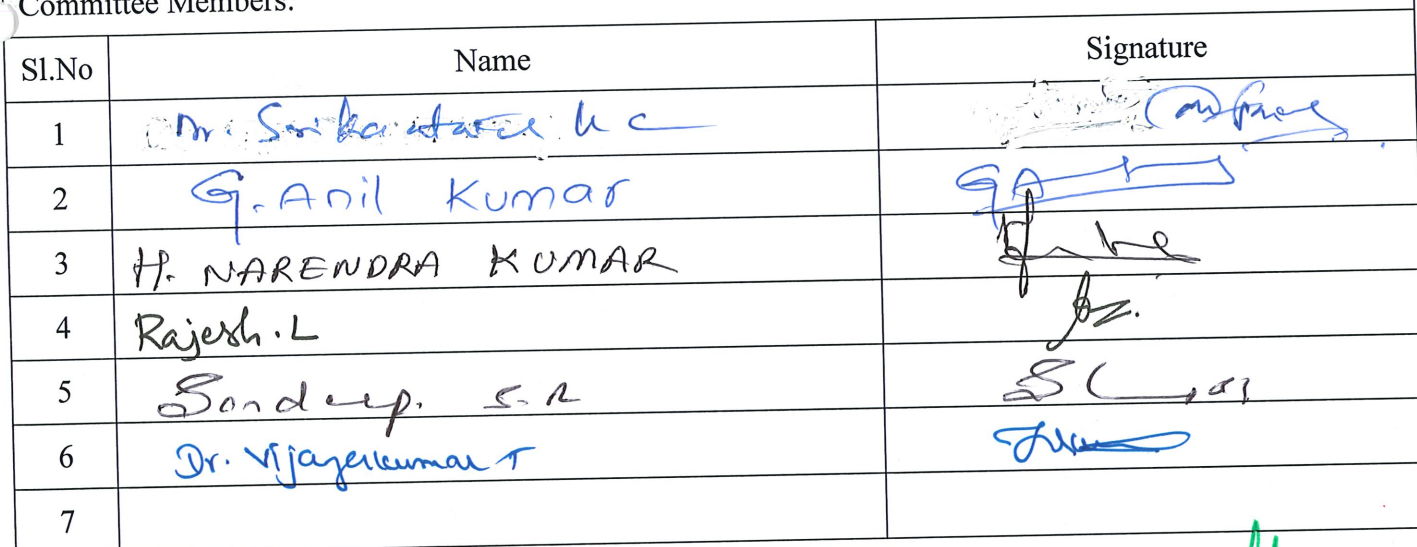 Committee Members:
Sl.No Name Signature
1 Dr. Srikantaiah K C
2 G. Anil Kumar
3 H. NARENDRA KUMAR
4 Rajesh. L
5 Sandeep. S.R
6 Dr. Vijayakumar T
7